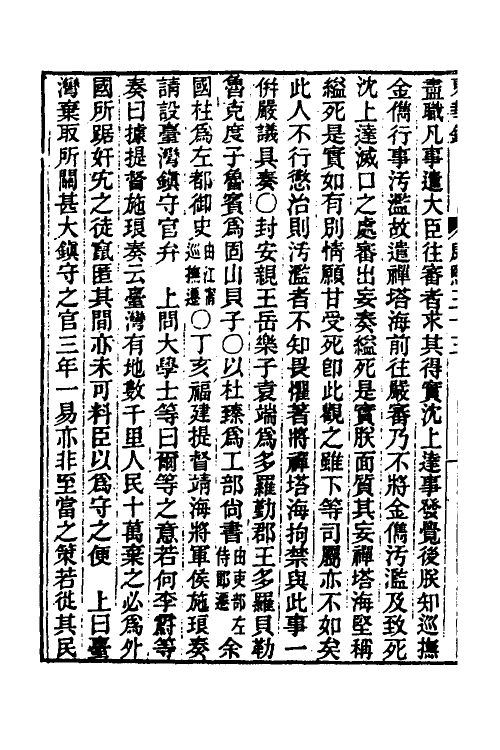 盡職凡事遣大臣往審者求其得實沈上達事發覺後朕知巡撫
金儁行事汚濫故遣禪塔海前往嚴審乃不將金儁汚濫及致死
沈上達滅口之處審出妄奏縊死是實朕面質其妄禪塔海堅稱
縊死是實如有別情願甘受死卽此觀之雖下等司屬亦不如矣
此人不行懲治則汚濫者不知畏懼著將禪塔海拘禁與此事一
倂嚴議具奏〇封安親王岳樂子袁端爲多羅勤郡王多羅貝勒
魯克度子魯賓爲固山貝子〇以杜臻爲工部尙書由吏部左侍郎遷余
國柱爲左都御史由江甯巡撫遷〇丁亥福建提督靖海將軍侯施琅奏
請設臺灣鎮守官弁　上問大學士等曰爾等之意若何李霨等
奏曰據提督施琅奏云臺灣有地數千里人民十萬棄之必爲外
國所踞奸宄之徒竄匿其間亦未可料臣以爲守之便　上曰臺
灣棄取所關甚大鎮守之官三年一易亦非至當之策若徙其民